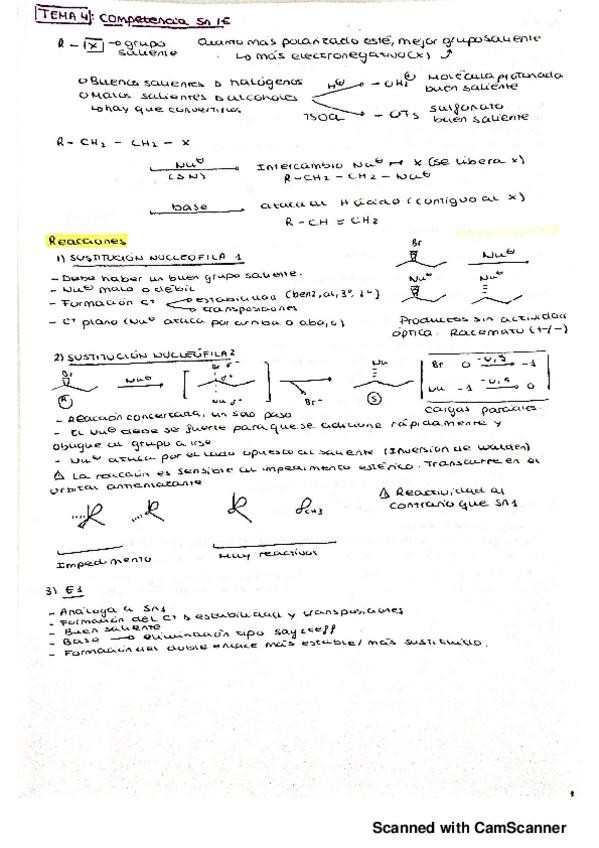 TEMA 4: Competencia SN/E
R - X → grupo saliente
Cuanto más polarizado esté, mejor grupo saliente
↳ más electronegativo (X)
Buenos salientes → halógenos
Malos salientes → alcoholes
↳ hay que convertirlos
H⊕
- OH2⊕
Molécula protonada
buen saliente
TsCl
- OTs
sulfonato
buen saliente
R - CH2 - CH2 - X
Nu⊖
(SN)
Intercambio Nu⊖ ↔ X (se libera X)
R-CH2-CH2-Nu
base
ataca al H ácido (contiguo al X)
R-CH=CH2
Reacciones
1) SUSTITUCIÓN NUCLEÓFILA 1
- Debe haber un buen grupo saliente.
- Nu⊖ malo o débil
- Formación C+
estabilidad (benz, al, 3º, 2º)
transposiciones
- C+ plano (Nu⊖ ataca por arriba o abajo)
Br
Nu⊖
Nu
Nu
Productos sin actividad
óptica. Racemato (+/-)
2) SUSTITUCIÓN NUCLEÓFILA 2
Br
Nu⊖
Br δ-
Nu δ-
Br⊖
Nu
R
S
Br 0 → -1
Nu -1 → 0
cargas parciales.
- Reacción concertada, un solo paso
- El Nu⊖ debe ser fuerte para que se adicione rápidamente y
obligue al grupo a irse
- Nu⊖ ataca por el lado opuesto al saliente (Inversión de Walden)
⚠ La reacción es sensible al impedimento estérico. Transcurre en el
orbital antienlazante
⚠ Reactividad al
contrario que SN1
CH3
Impedimento
Muy reactivos
3) E1
- Análoga a SN1
- Formación del C+ → estabilidad y transposiciones
- Buen saliente
- Base → eliminación tipo Sayzeff
- Formación del doble enlace más estable / más sustituido.
Scanned with CamScanner